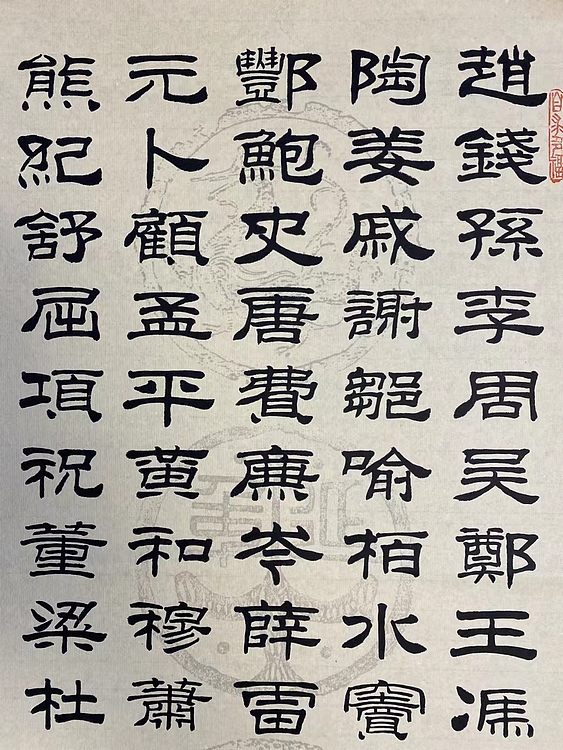 趙錢孫李周吴鄭王馮
陶姜戚謝鄒喻柏水竇
酆鮑史唐費廉岑薛雷
元卜顧孟平黃和穆蕭
熊紀舒屈項祝董梁杜